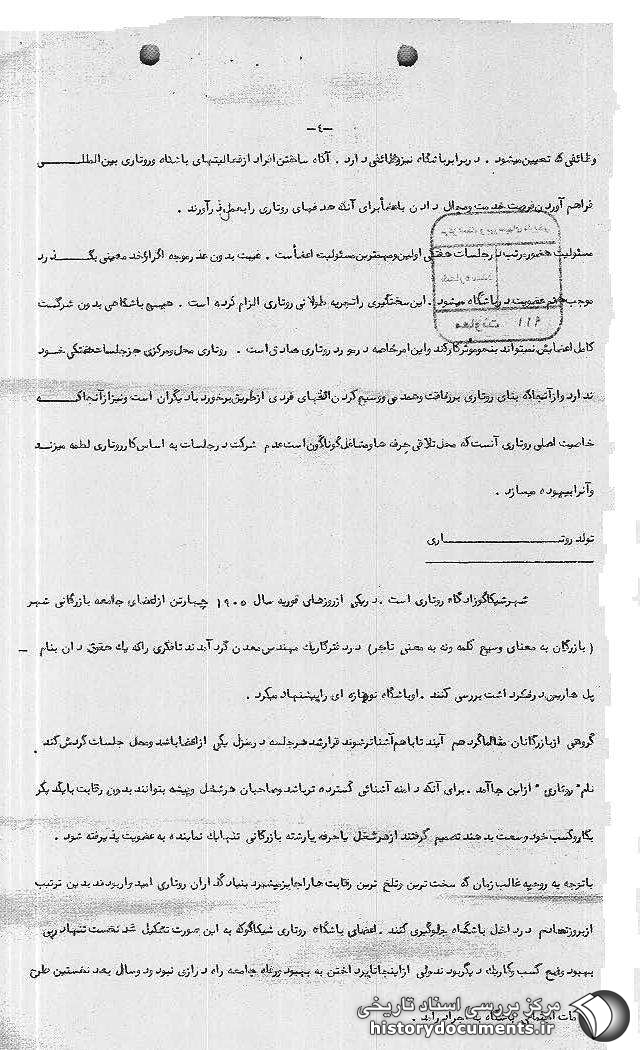 -٤-
وظائفی که تعیین میشود . در برابر باشگاه نیز وظائفی دارد . آگاه ساختن افراد از فعالیتهای باشگاه و روتاری بین المللی
فراهم آوردن فرصت خدمت و مجال دادن باعضأ برای آنکه هدفهای روتاری را بعمل درآورند .
مسئولیت حضور مرتب در جلسات هفتگی اولین و مهمترین مسئولیت اعضأست . غیبت بدون عذر موجه اگر از حد معینی بگذرد
موجب ختم عضویت در باشگاه میشود . این سختگیری را تجربه طولانی روتاری الزام کرده است . هیچ باشگاهی بدون شرکت
کامل اعضایش نمیتواند بنحو موثر کار کند و این امر خاصه در مورد روتاری صادق است . روتاری محل و مرکزی جز جلسات هفتگی خود
ندارد و از آنجا که بنای روتاری بر رفاقت و همدمی و وسیع کردن افقهای فردی از طریق برخورد با دیگران است و نیز از آنجا که
خاصیت اصلی روتاری آنست که محل تلاقی حرفه ها و مشاغل گوناگون است عدم شرکت در جلسات به اساس کار روتاری لطمه میزند
و آنرا بیهوده میسازد .
تولد روتاری
شهر شیکاگو زادگاه روتاری است . در یکی از روزهای فوریه سال ۱۹۰۵ چهار تن از اعضای جامعه بازرگانی شهر
( بازرگان به معنای وسیع کلمه و نه به معنی تاجر ) در دفتر کار یک مهندس معدن گرد آمدند تا فکری را که یک حقوق دان بنام -
پل هاریس در فکر داشت بررسی کنند . او باشگاه نوع تازه ای را پیشنهاد میکرد .
گروهی از بازرگانان گرد هم آیند تا باهم آشناتر شوند قرار شد هر جلسه در منزل یکی از اعضا باشد و محل جلسات گردش کند .
نام " روتاری " از این جا آمد . برای آنکه دامنه آشنائی گسترده تر باشد و صاحبان هر شغل و پیشه بتوانند بدون رقابت با یکدیگر
بکار و کسب خود وسعت بدهند تصمیم گرفتند از هر شغل یا حرفه یا رشته بازرگانی تنها یک نماینده به عضویت پذیرفته شود .
با توجه به روحیه غالب زمان که سخت ترین و تلخ ترین رقابت ها را جایز میشمرد بنیادگذاران روتاری امیدوار بودند بدین ترتیب
از بروز تصادم در داخل باشگاه جلوگیری کنند . اعضای باشگاه روتاری شیکاگو که به این صورت تشکیل شد نخست تنها در پی
بهبود وضع کسب و کار یکدیگر بودند ولی از اینجا تا پرداختن به بهبود و رفاه جامعه راه درازی نبود و دو سال بعد نخستین طرح
باشگاه به اجرا درآمد .
۹۱۱
مرکز بررسی اسناد تاریخی
historydocuments.ir